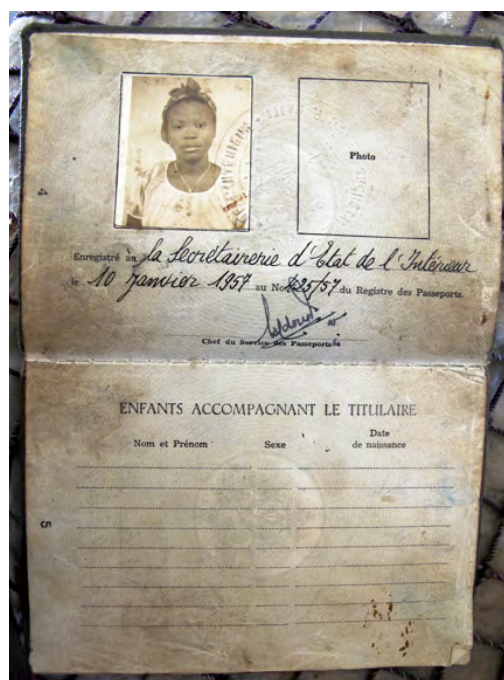 4
Photo
Enregistré à la Secrétairerie d'Etat de l'Intérieur
le 10 Janvier 1957 au No 425/57 du Registre des Passeports.
Chef du Service des Passeports
ENFANTS ACCOMPAGNANT LE TITULAIRE
Nom et Prénom Sexe Date de naissance
5